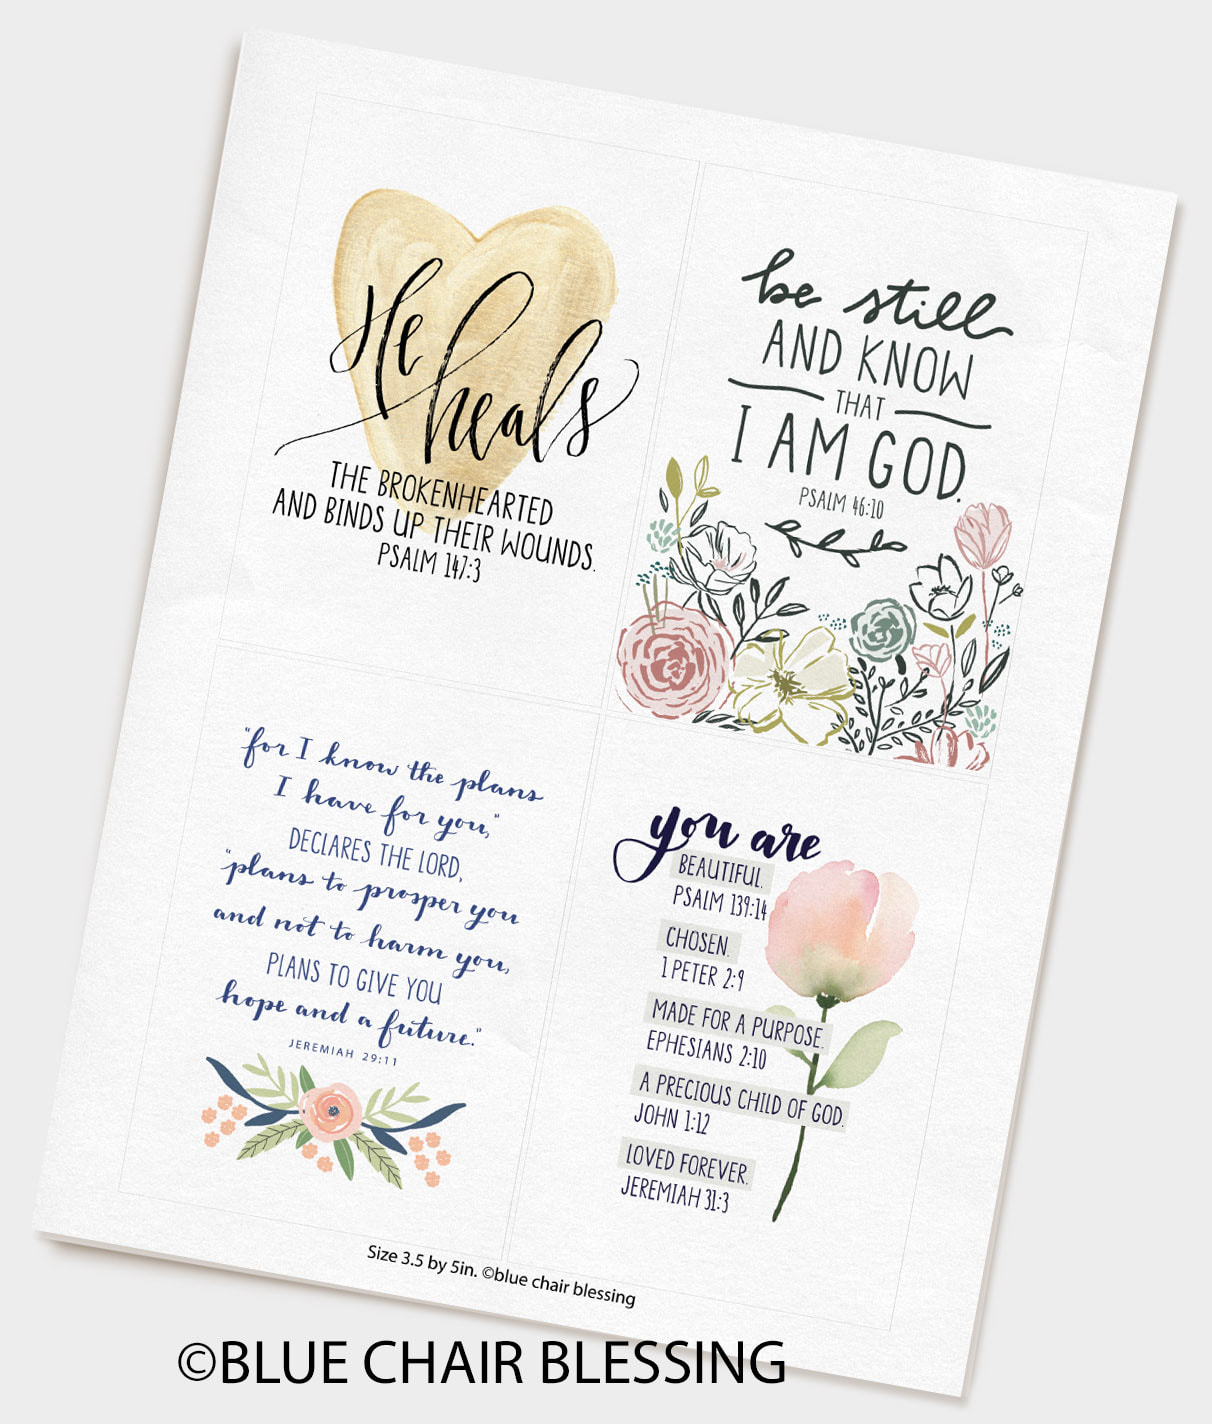 He
heals
THE BROKENHEARTED
AND BINDS UP THEIR WOUNDS.
PSALM 147:3
be still
AND KNOW
THAT
I AM GOD.
PSALM 46:10
"for I know the plans
I have for you,"
DECLARES THE LORD,
"plans to prosper you
and not to harm you,
PLANS TO GIVE YOU
hope and a future."
JEREMIAH 29:11
you are
BEAUTIFUL.
PSALM 139:14
CHOSEN.
1 PETER 2:9
MADE FOR A PURPOSE.
EPHESIANS 2:10
A PRECIOUS CHILD OF GOD.
JOHN 1:12
LOVED FOREVER.
JEREMIAH 31:3
Size 3.5 by 5in. ©blue chair blessing
©BLUE CHAIR BLESSING